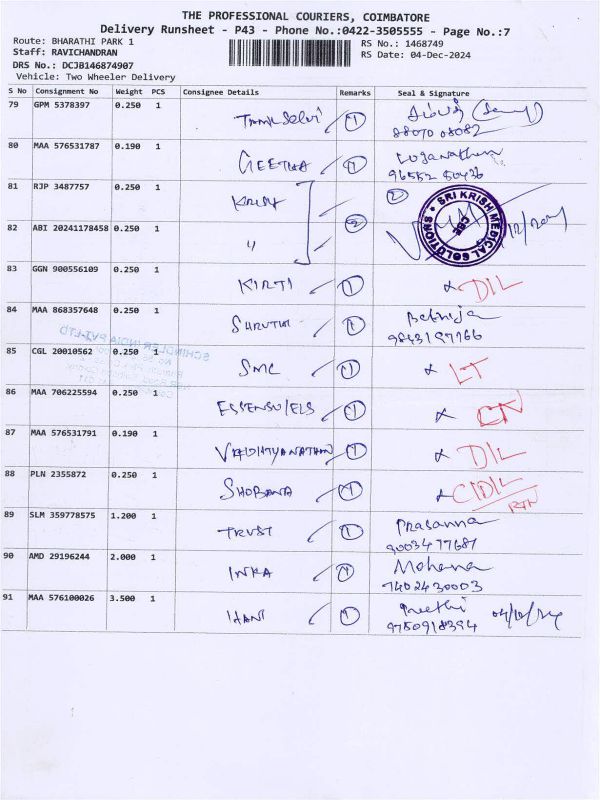 THE PROFESSIONAL COURIERS, COIMBATORE
Delivery Runsheet - P43 - Phone No.:0422-3505555 - Page No.:7
Route: BHARATHI PARK 1 RS No.: 1468749
Staff: RAVICHANDRAN RS Date: 04-Dec-2024
DRS No.: DCJB146874907
Vehicle: Two Wheeler Delivery
S No Consignment No Weight PCS Consignee Details Remarks Seal & Signature
79 GPM 5378397 0.250 1 1
88070 08082
80 MAA 576531787 0.190 1 GEETHA 1 Loganathan
96552 50436
81 RJP 3487757 0.250 1 2
SRI KRISH MEDICAL SOLUTIONS CBE
82 ABI 20241178458 0.250 1 " 2
83 GGN 900556109 0.250 1 KIRTI 1 x DIL
84 MAA 868357648 0.250 1 SHRUTHI 1
SCHINDLER INDIA PVT-LTD
85 CGL 20010562 0.250 1 SMC 1 x LT
86 MAA 706225594 0.250 1 1 x CN
87 MAA 576531791 0.190 1 VAIDHYANATHAN 1 x DIL
88 PLN 2355872 0.250 1 SHOBANA 1 x C/DIL
RTN
89 SLM 359778575 1.200 1 TRUST 1 Prasanna
9003477687
90 AMD 29196244 2.000 1 INKA 1 Mohana
7402430003
91 MAA 576100026 3.500 1 HANI 1 Preethi 04/12/24
9750918394